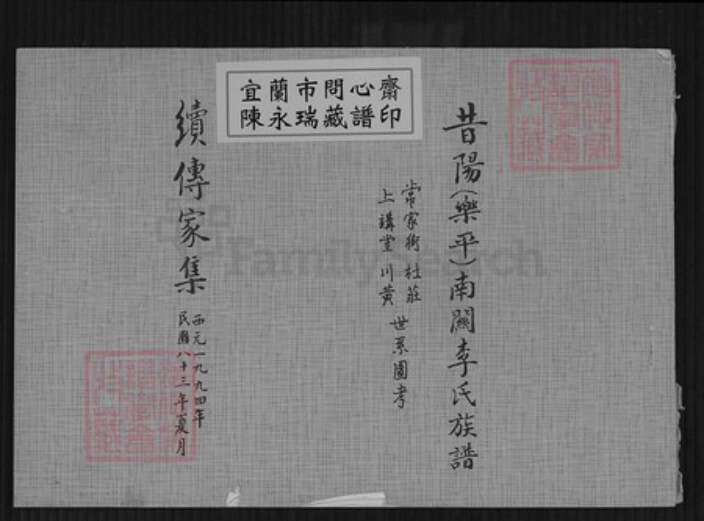 宜蘭市問心齋
陳永瑞藏譜印
昔陽(樂平)南關李氏族譜
常家街杜莊
上講堂川黃
世系圖考
續傳家集
西元一九九四年
民國八十三年夏月
FamilySearch